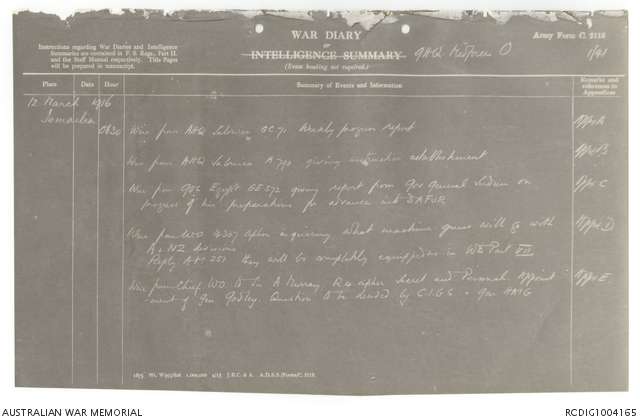 WAR DIARY
or
INTELLIGENCE SUMMARY
(Erase heading not required.)
GHQ Medforce O
Army Form C. 2118
1/91
Instructions regarding War Diaries and Intelligence
Summaries are contained in F. S. Regs., Part II.
and the Staff Manual respectively. Title Pages
will be prepared in manuscript.
Place Date Hour Summary of Events and Information Remarks and references to Appendices
12 March 1916
Ismailia
0830 Wire from AHQ Salonica GC 71 Weekly progress report App A
Wire from AHQ Salonica A 790 giving establishment App B
Wire from GOC Egypt GE 572 giving report from Gov General Sudan on App C
progress of his preparations for advance into DARFUR
Wire from WO 4357 cipher inquiring what machine guns will go with App D
A & NZ divisions
Reply AM 251 they will be completely equipped as in WE Part VII
Wire from Chief WO to Sir A Murray R cipher Secret and Personal Appoint App E
-ment of Gen Godley. Question to be decided by C.I.G.S. & Gen HAIG
1875 Wt. W593/826 1,000,000 4/15 J.B.C. & A. A.D.S.S./Forms/C. 2118.
AUSTRALIAN WAR MEMORIAL
RCDIG1004165